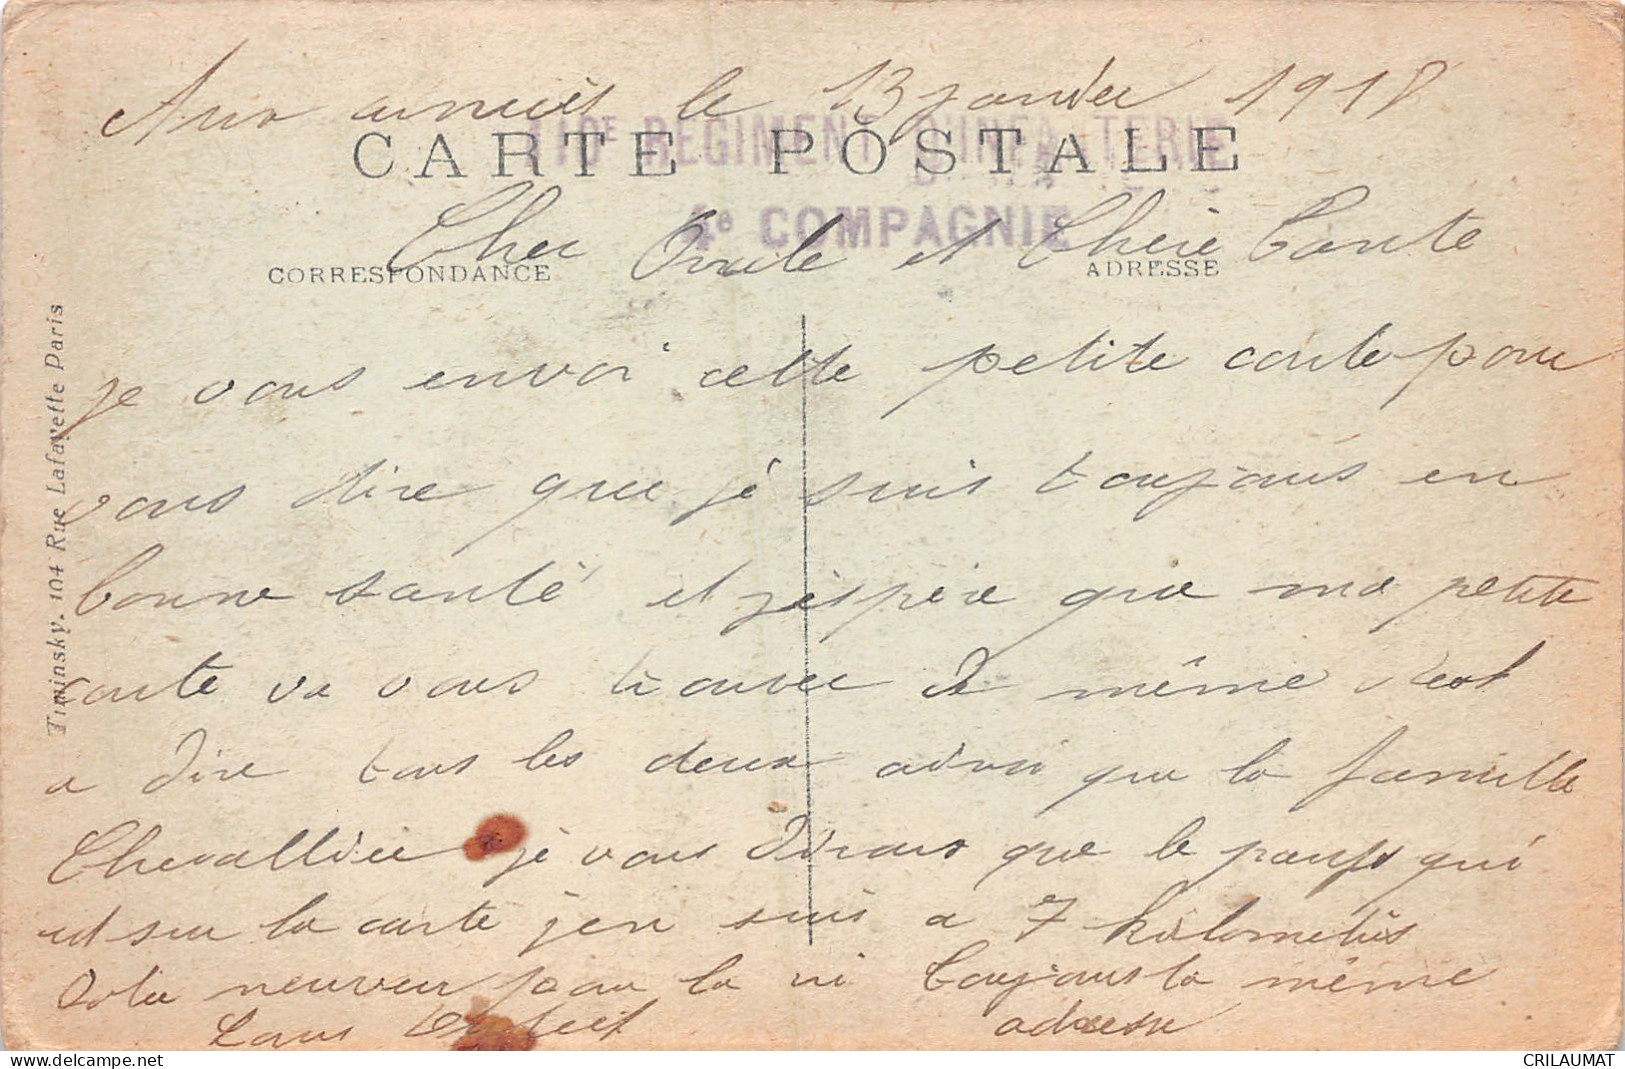 Aux armées le 13 janvier 1918
110E REGIMENT D'INFANTERIE
CARTE POSTALE
4e COMPAGNIE
Cher Oncle et Chere Tante
CORRESPONDANCE
ADRESSE
je vous envoi cette petite carte pour
vous dire que je suis toujours en
bonne santé et j'éspère que ma petite
carte va vous trouver de même c'est
a dire tous les deux ainsi que la famille
Chevallier je vous dirais que le pays qui
est sur la carte j'en suis a 7 kilometres
votre neuveu pour la vi toujours la même
adresse
Timinsky. 104 Rue Lafayette Paris
delcampe.net
CRILAUMAT